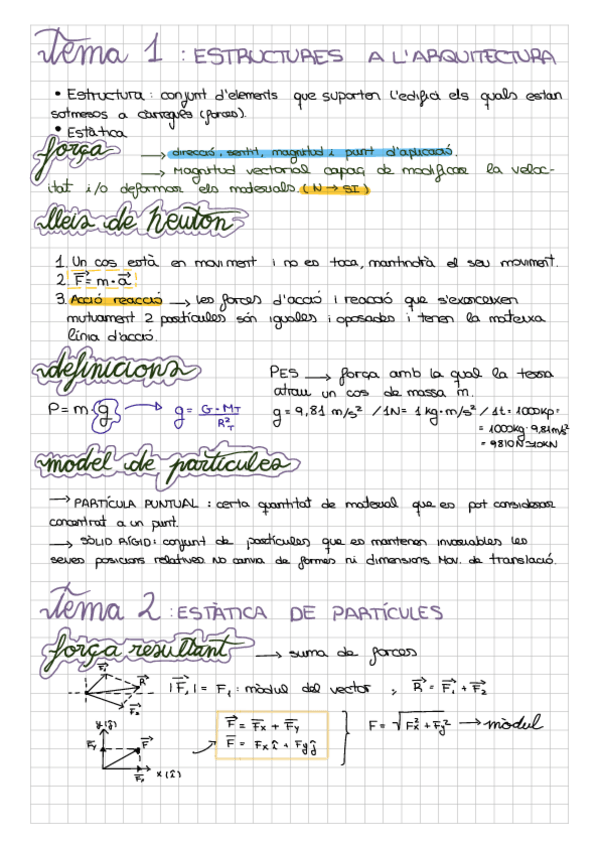 Tema 1 : ESTRUCTURES A L'ARQUITECTURA
• Estructura : conjunt d'elements que suporten l'edifici els quals estan
sotmesos a càrregues (forces).
• Estàtica
força → direcció, sentit, magnitud i punt d'aplicació.
→ Magnitud vectorial capaç de modificar la veloc-
itat i/o deformar els materials. (N → SI)
lleis de Newton
1. Un cos està en moviment i no es toca, mantindrà el seu moviment.
2. F⃗ = m · a⃗
3. Acció reacció → les forces d'acció i reacció que s'exerceixen
mutuament 2 partícules són iguales i oposades i tenen la mateixa
línia d'acció.
definicions
PES → força amb la qual la terra
atrau un cos de massa m.
P = m · g → g = G · M_T / R_T²
g = 9,81 m/s² / 1N = 1 kg · m/s² / 1t = 1000Kp =
= 1000kg · 9,81m/s²
= 9810N ≃ 10KN
model de partícules
→ PARTÍCULA PUNTUAL : certa quantitat de material que es pot considerar
concentrat a un punt.
→ SÒLID RÍGID : conjunt de partícules que es mantenen invariables les
seves posicions relatives. No canvia de formes ni dimensions. Mov. de translació.
Tema 2 : ESTÀTICA DE PARTÍCULES
força resultant → suma de forces
F⃗₁ R⃗ F⃗₂
|F⃗₁| = F₁ : mòdul del vector , R⃗ = F⃗₁ + F⃗₂
y (ĵ) F⃗y F⃗ F⃗x x (î)
F⃗ = F⃗x + F⃗y
F⃗ = Fx î + Fy ĵ
F = √(Fx² + Fy²) → mòdul